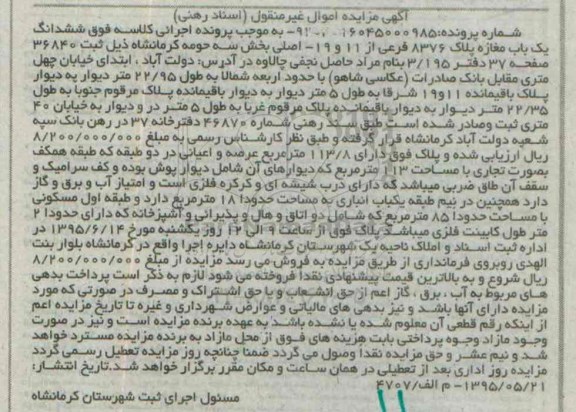 آگهی مزایده اموال غیرمنقول (اسناد رهنی)
شماره پرونده:۱۶۰۴۵۰۰۰۹۸۵ به موجب پرونده اجرائی کلاسه فوق ششدانگ
یک باب مغازه پلاک ۸۳۷۶ فرعی از ۱۱ و ۱۹- اصلی بخش سه حومه کرمانشاه ذیل ثبت ۳۶۸۴۰
صفحه ۳۷ دفتر ۳/۱۹۵ بنام مراد حاصل نجفی چالاوه در آدرس: دولت آباد ، ابتدای خیابان چهل
متری مقابل بانک صادرات (عکاسی شاهو) با حدود اربعه شمالا به طول ۲۲/۹۵ متر دیوار به دیوار
پلاک باقیمانده ۱۱و۱۹ شرقا به طول ۵ متر دیوار به دیوار باقیمانده پلاک مرقوم جنوبا به طول
۲۲/۳۵ متر دیوار به دیوار باقیمانده پلاک مرقوم غربا به طول ۵ متر در و دیوار به خیابان ۴۰
متری ثبت وصادر شده است طبق سند رهنی شماره ۴۶۸۷۰ دفترخانه ۳۷ در رهن بانک سپه
شعبه دولت آباد کرمانشاه قرار گرفته و طبق نظر کارشناس رسمی به مبلغ ۸/۲۰۰/۰۰۰/۰۰۰
ریال ارزیابی شده و پلاک فوق دارای ۱۱۳/۸ مترمربع عرصه و اعیانی در دو طبقه که طبقه همکف
بصورت تجاری با مساحت ۱۱۳ مترمربع که دیوارهای آن شامل دیوار پوش بوده و کف سرامیک و
سقف آن طاق ضربی میباشد که دارای درب شیشه ای و کرکره فلزی است و امتیاز آب و برق و گاز
دارد همچنین در نیم طبقه یکباب انباری به مساحت حدودا ۱۸ مترمربع دارد و طبقه اول مسکونی
با مساحت حدودا ۸۵ مترمربع که شامل دو اتاق و هال و پذیرائی و آشپزخانه که دارای حدودا ۲
متر طول کابینت فلزی میباشد پلاک فوق از ساعت ۹ الی ۱۲ روز یکشنبه مورخ ۱۳۹۵/۶/۱۴ در
اداره ثبت اسناد و املاک ناحیه یک شهرستان کرمانشاه دایره اجرا واقع در کرمانشاه بلوار بنت
الهدی روبروی فرمانداری از طریق مزایده به فروش می رسد مزایده از مبلغ ۸/۲۰۰/۰۰۰/۰۰۰
ریال شروع و به بالاترین قیمت پیشنهادی نقدا فروخته می شود لازم به ذکر است پرداخت بدهی
های مربوط به آب ، برق ، گاز اعم از حق انشعاب و یا حق اشتراک و مصرف در صورتی که مورد
مزایده دارای آنها باشد و نیز بدهی های مالیاتی و عوارض شهرداری و غیره تا تاریخ مزایده اعم
از اینکه رقم قطعی آن معلوم شده یا نشده باشد به عهده برنده مزایده است و نیز در صورت
وجود مازاد وجوه پرداختی بابت هزینه های فوق از محل مازاد به برنده مزایده مسترد خواهد
شد و نیم عشر و حق مزایده نقدا وصول می گردد ضمنا چنانچه روز مزایده تعطیل رسمی گردد
مزایده روز اداری بعد از تعطیلی در همان ساعت و مکان مقرر برگزار خواهد شد.تاریخ انتشار:
۱۳۹۵/۰۵/۲۱- م الف/۴۷۰۷
مسئول اجرای ثبت شهرستان کرمانشاه